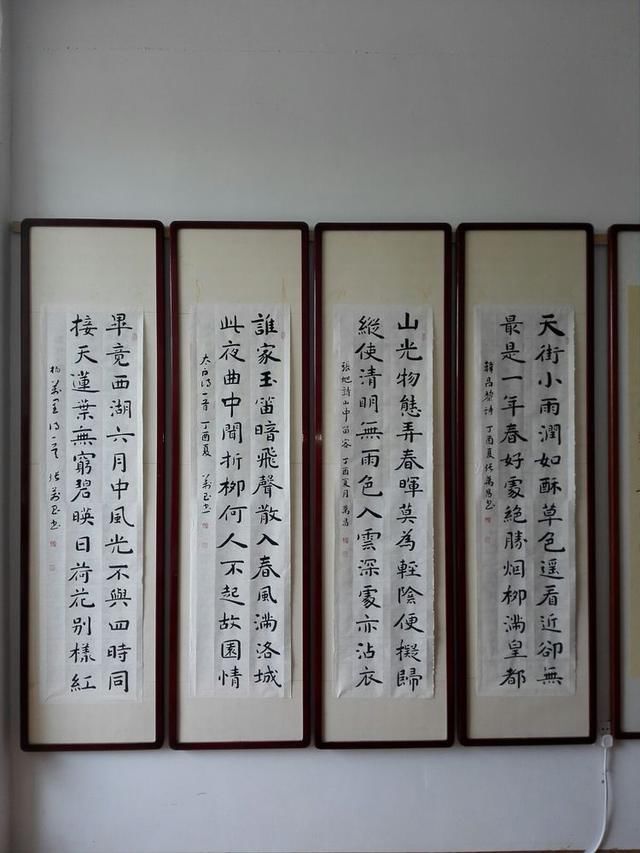 天街小雨潤如酥草色遥看近卻無
最是一年春好處絕勝烟柳滿皇都
韓昌黎詩 丁酉夏張萬昌書
山光物態弄春暉莫為輕陰便擬歸
縱使清明無雨色入雲深處亦沾衣
張旭詩山中留客 丁酉夏月萬昌
誰家玉笛暗飛聲散入春風滿洛城
此夜曲中聞折柳何人不起故園情
太白詩一首 丁酉夏
畢竟西湖六月中風光不與四時同
接天蓮葉無窮碧暎日荷花别樣紅
楊萬里詩一首